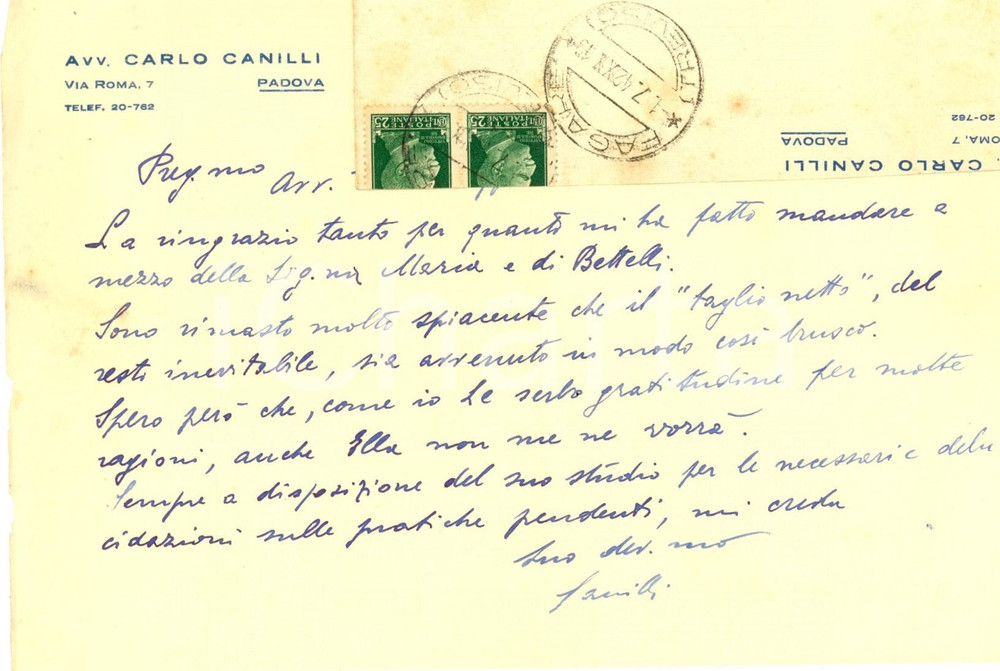 Avv. CARLO CANILLI
VIA ROMA, 7 PADOVA
TELEF. 20-762
POSTE ITALIANE
CENT 25
FAGARE' (TREVISO)
7.42 XX
CARLO CANILLI
OMA, 7 PADOVA
20-762
Preg.mo Avv.
La ringrazio tanto per quanto mi ha fatto mandare a
mezzo della Sig.na Maria e di Bettelli.
Sono rimasto molto spiacente che il "taglio netto", del
resto inevitabile, sia avvenuto in modo così brusco.
Spero però che, come io Le serbo gratitudine per molte
ragioni, anche Ella non me ne vorrà.
Sempre a disposizione del suo studio per le necessarie delu
cidazioni sulle pratiche pendenti, mi creda
Suo dev.mo
Canilli